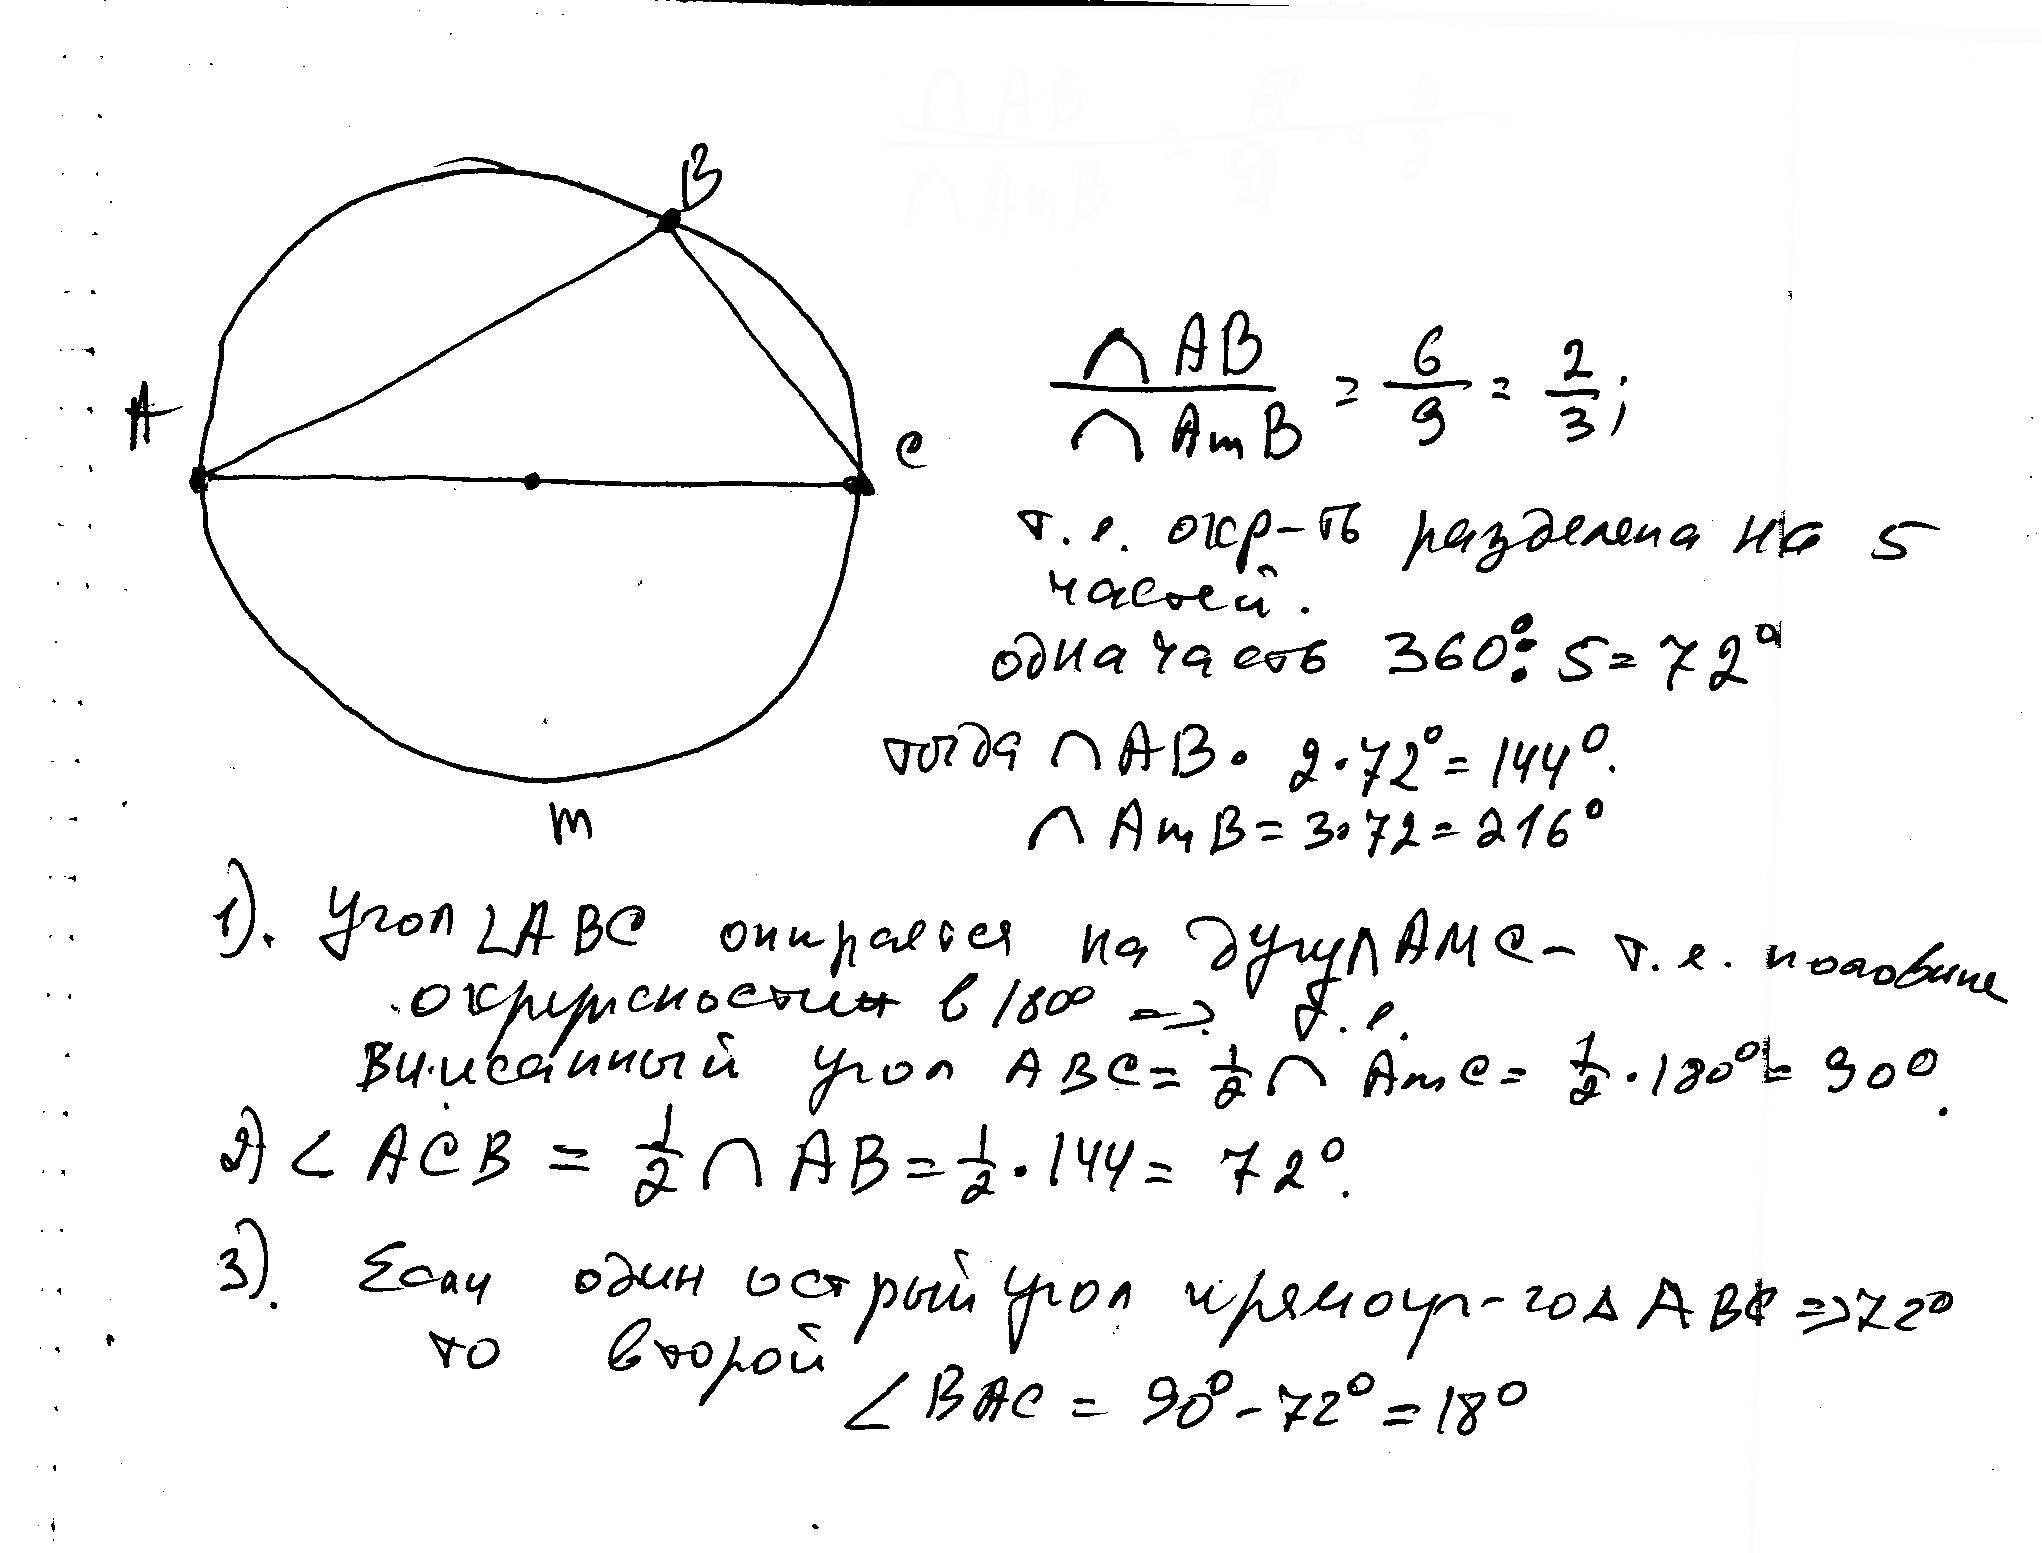 B
A
C
m
∩AB / ∩AmB = 6/9 = 2/3;
т.е. окр-ть разделена на 5
частей.
одна часть 360° : 5 = 72°
тогда ∩AB = 2·72° = 144°.
∩AmB = 3·72 = 216°
1). Угол ∠ABC опирается на дугу ∩AMC – т.е. половине
окружности в 180° => т.е.
Вписанный угол ABC = 1/2 ∩ AmC = 1/2 · 180° = 90°.
2) ∠ ACB = 1/2 ∩ AB = 1/2 · 144 = 72°.
3). Если один острый угол прямоуг-го Δ ABC => 72°
то второй
∠ BAC = 90° - 72° = 18°